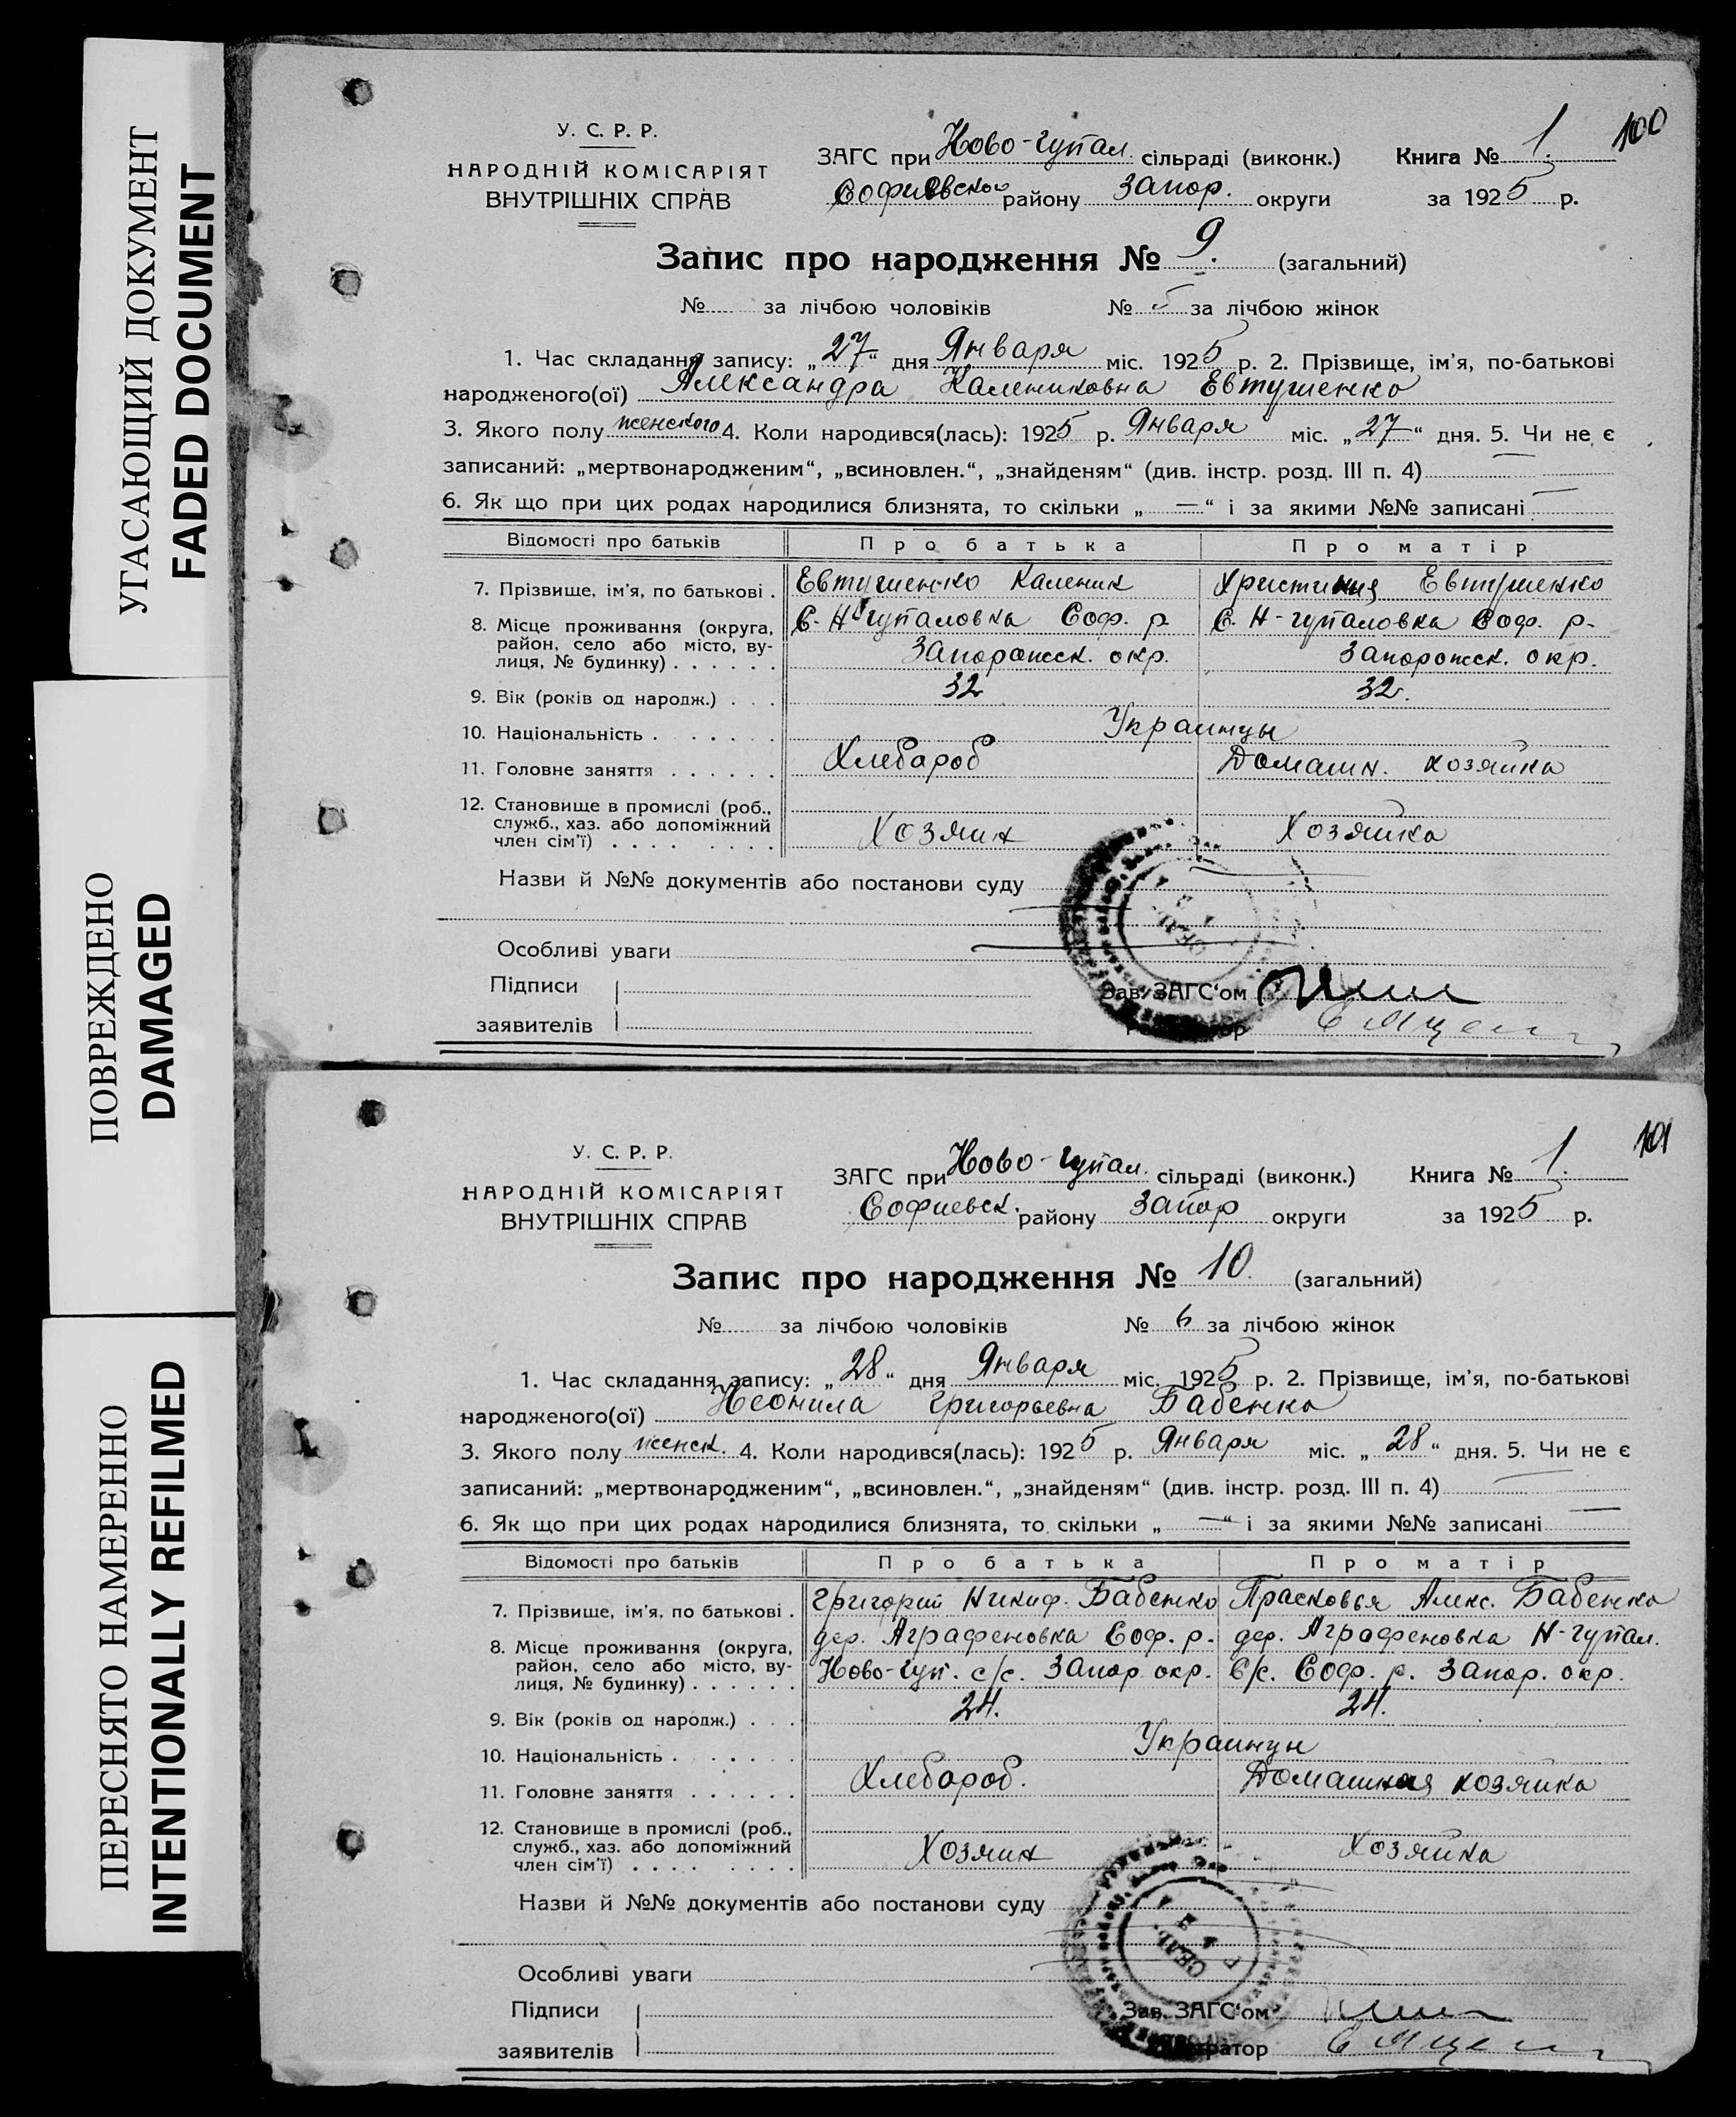 УГАСАЮЩИЙ ДОКУМЕНТ
FADED DOCUMENT
ПОВРЕЖДЕНО
DAMAGED
ПЕРЕСНЯТО НАМЕРЕННО
INTENTIONALLY REFILMED
100
У. С. Р. Р.
НАРОДНІЙ КОМІСАРІЯТ
ВНУТРІШНІХ СПРАВ
ЗАГС при Ново-гупал. сільраді (виконк.) Книга № 1.
Софиевского району Запор. округи за 1925 р.
Запис про народження № 9. (загальний)
№ за лічбою чоловіків № 5 за лічбою жінок
1. Час складання запису: „27“ дня Января міс. 1925 р. 2. Прізвище, ім’я, по-батькові
народженого(ої) Александра Калениковна Евтушенко
3. Якого полу женского 4. Коли народився(лась): 1925 р. Января міс. „27“ дня. 5. Чи не є
записаний: „мертвонародженим“, „всиновлен.“, „знайденям“ (див. інстр. розд. III п. 4) —
6. Як що при цих родах народилися близнята, то скільки „—“ і за якими №№ записані —
Відомості про батьків Про батька Про матір
7. Прізвище, ім’я, по батькові . Евтушенко Каленик Христиния Евтушенко
8. Місце проживання (округа, район, село або місто, вулиця, № будинку) . . . . . . С. Н-гупаловка Соф. р. Запорожск. окр. С. Н-гупаловка Соф. р. Запорожск. окр.
9. Вік (років од народж.) . . . 32 32.
10. Національність . . . . . . Украинцы
11. Головне заняття . . . . . . Хлебароб Домашн. хозяйка
12. Становище в промислі (роб., служб., хаз. або допоміжний член сім’ї) . . . . . . . . Хозяин Хозяйка
Назви й №№ документів або постанови суду
Особливі уваги
Підписи
заявителів
Зав. ЗАГС‘ом
101
У. С. Р. Р.
НАРОДНІЙ КОМІСАРІЯТ
ВНУТРІШНІХ СПРАВ
ЗАГС при Ново-гупал. сільраді (виконк.) Книга № 1.
Софиевск. району Запор округи за 1925 р.
Запис про народження № 10. (загальний)
№ за лічбою чоловіків № 6 за лічбою жінок
1. Час складання запису: „28“ дня Января міс. 1925 р. 2. Прізвище, ім’я, по-батькові
народженого(ої) Неонила Григорьевна Бабенко
3. Якого полу женск. 4. Коли народився(лась): 1925 р. Января міс. „28“ дня. 5. Чи не є
записаний: „мертвонародженим“, „всиновлен.“, „знайденям“ (див. інстр. розд. III п. 4) —
6. Як що при цих родах народилися близнята, то скільки „—“ і за якими №№ записані —
Відомості про батьків Про батька Про матір
7. Прізвище, ім’я, по батькові . Григорий Никиф. Бабенко Прасковья Алекс. Бабенко
8. Місце проживання (округа, район, село або місто, вулиця, № будинку) . . . . . . дер. Аграфеновка Соф. р. Ново-Гуп. с/с. Запор. окр. дер. Аграфеновка Н-гупал. С/с. Соф. р. Запор. окр.
9. Вік (років од народж.) . . . 24. 24.
10. Національність . . . . . . Украинцы
11. Головне заняття . . . . . . Хлебароб. Домашняя хозяйка
12. Становище в промислі (роб., служб., хаз. або допоміжний член сім’ї) . . . . . . . . Хозяин Хозяйка
Назви й №№ документів або постанови суду
Особливі уваги
Підписи
заявителів
Зав. ЗАГС‘ом